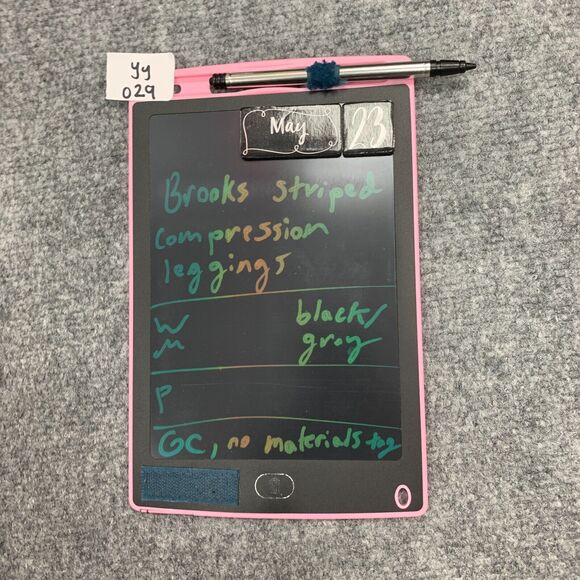 yy
029
May 23
Brooks striped
compression
leggings
W black/
M gray
P
GC, no materials tag